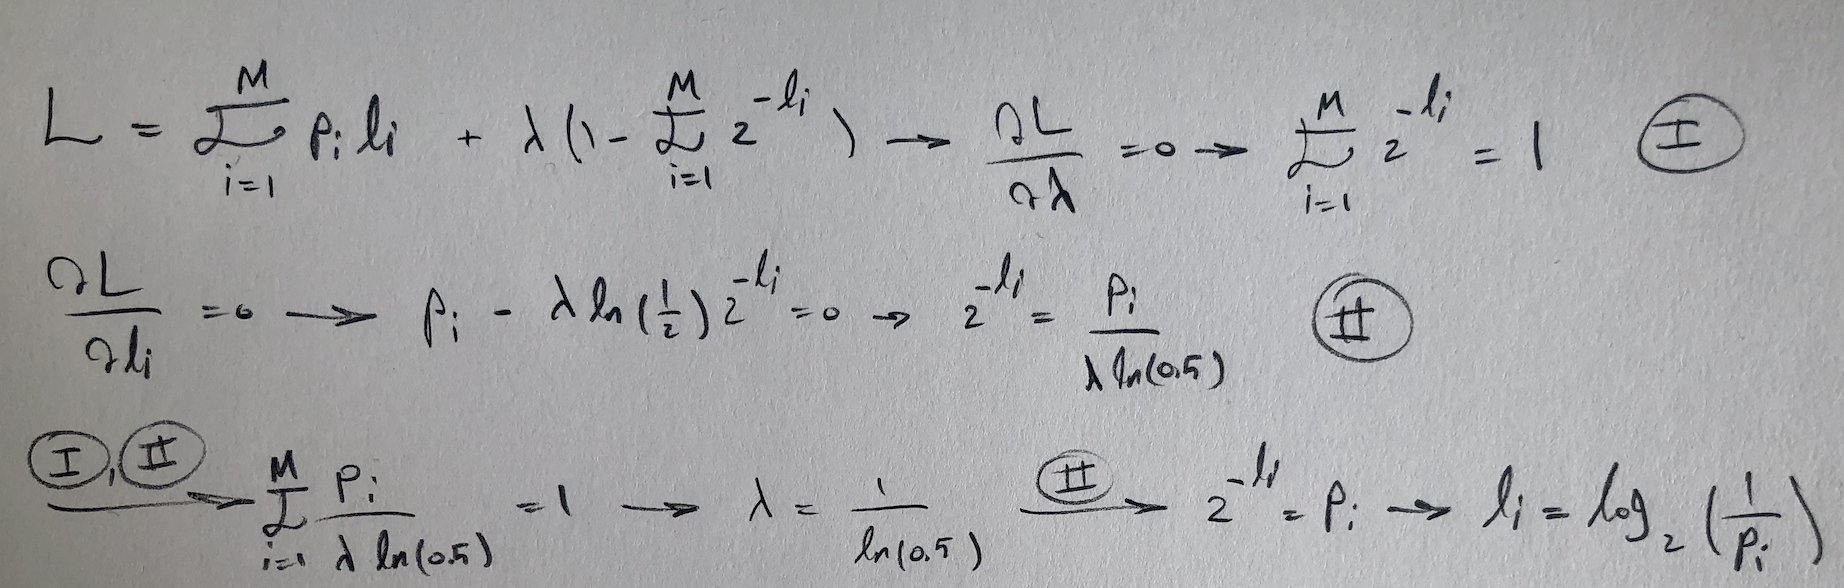 L = ∑_{i=1}^{M} p_i l_i + λ(1 - ∑_{i=1}^{M} 2^{-l_i}) → ∂L/∂λ = 0 → ∑_{i=1}^{M} 2^{-l_i} = 1 Ⅰ
∂L/∂l_i = 0 → p_i - λ ln(1/2) 2^{-l_i} = 0 → 2^{-l_i} = p_i / (λ ln(0.5)) Ⅱ
Ⅰ, Ⅱ → ∑_{i=1}^{M} p_i / (λ ln(0.5)) = 1 → λ = 1 / ln(0.5) Ⅱ → 2^{-l_i} = p_i → l_i = log_2(1/p_i)